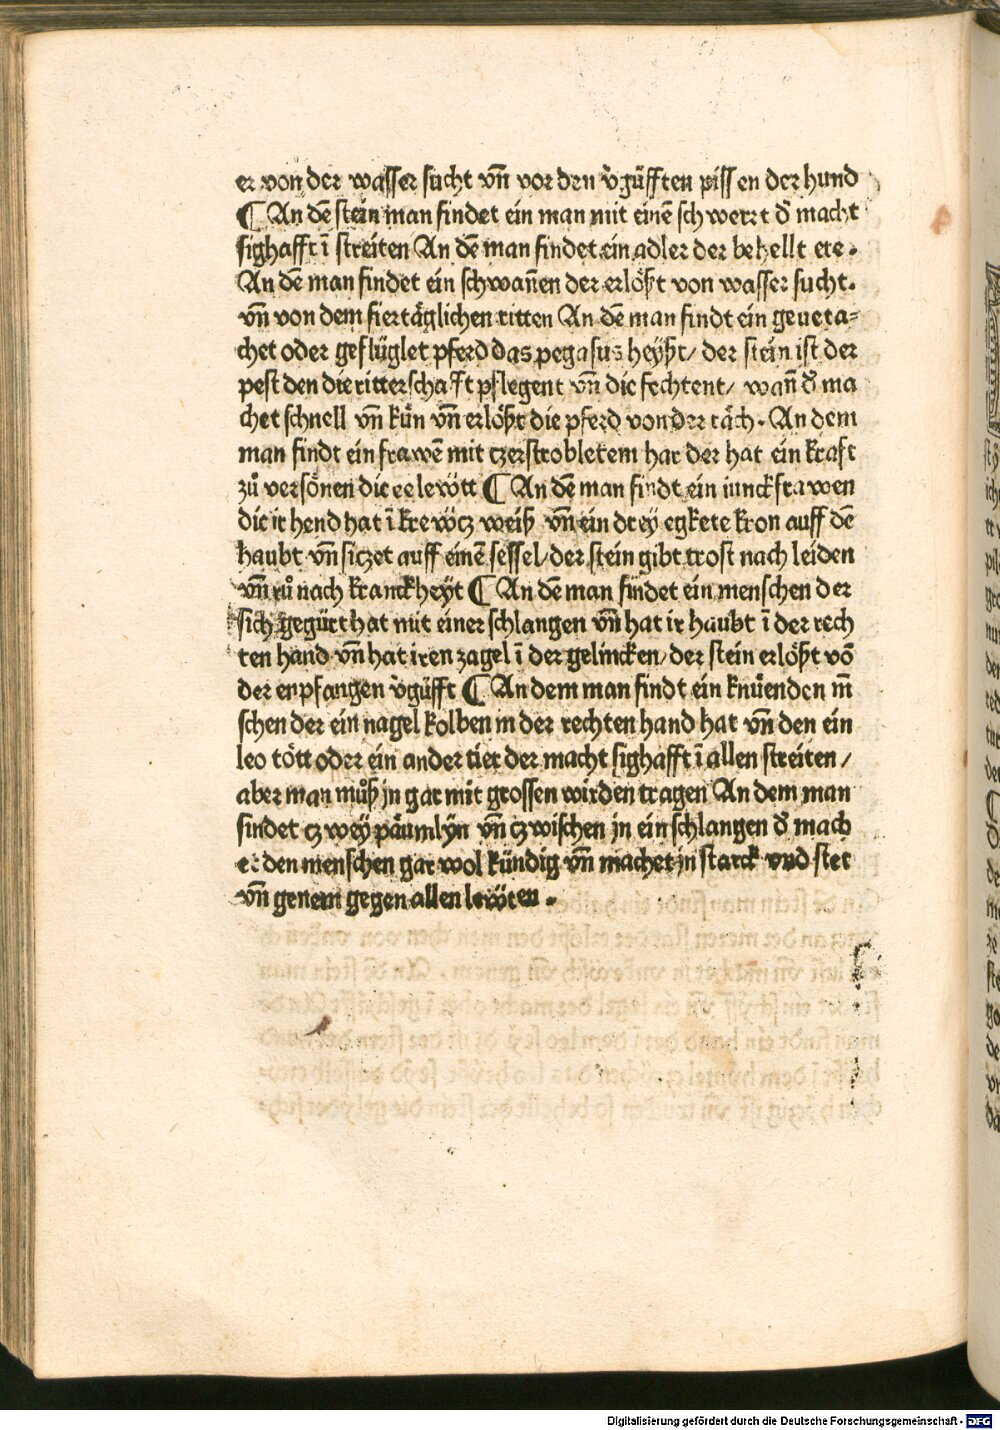 er von der wasser sucht vñ vor den v̉güfften pissen der hund
¶ An dē stein man findet ein man mit einē schwerzt d̉ macht
sighafft ī streiten An dē man findet ein adler der behellt ere.
An dē man findet ein schwañen der erlößt von wasser sucht.
vñ von dem fiertäglichen ritten An dē man findt ein geueta⸗
chet oder geflüglet pferd das pegasus heyßt/ der stein ist der
pest den die ritterschaft pflegent vñ die fechtent/ wañ d̉ ma
chet schnell vñ kün vñ erlößt die pferd von der räch. An dem
man findt ein frawē mit tzerstrobletem har der hat ein kraft
zů versönen die eelewtt ¶ An dē man findt ein iunckfrawen
die ir hend hat ī krewcz weiß vñ ein drey egkete kron auff dē
haubt vñ siczet auff einē sessel/ der stein gibt trost nach leiden
vñ rů nach kranckheyt ¶ An dē man findet ein menschen der
sich gegürt hat mit einer schlangen vñ hat ir haubt ī der rech
ten hand vñ hat iren zagel ī der gelincken/ der stein erlößt vō
der enpfangen v̉güfft ¶ An dem man findt ein knüenden m̄
schen der ein nagel kolben in der rechten hand hat vñ den ein
leo tött oder ein ander tier der macht sighafft ī allen streiten/
aber man můß jn gar mit grossen wirden tragen An dem man
findet czwey päumlyn vñ czwischen jn ein schlangen d̉ mach
et den menschen gar wol kündig vñ machet jn starck vnd stet
vñ genem gegen allen lewten.
Digitalisierung gefördert durch die Deutsche Forschungsgemeinschaft - DFG